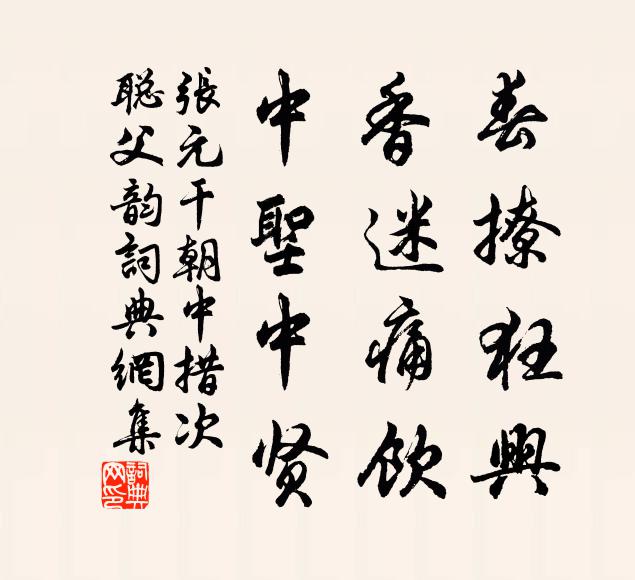 春撩狂興
香迷痛飲
中聖中贤
張元干朝中措次
聪父韵詞典網集
詞典网印